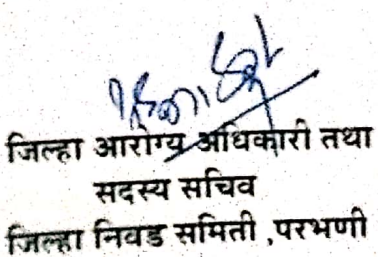 जिल्हा आरोग्य अधिकारी तथा
सदस्य सचिव
जिल्हा निवड समिती ,परभणी